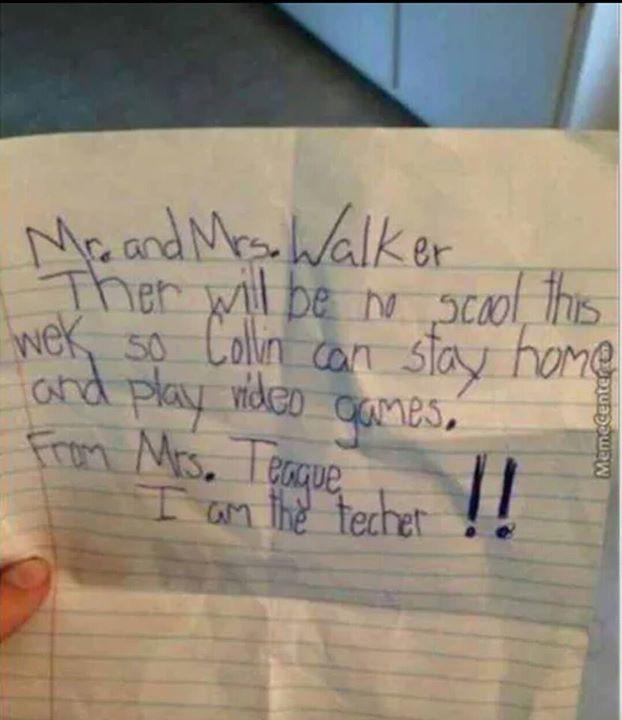 Mr. and Mrs. Walker
Ther will be no scool this
wek so Collin can stay home
and play video games.
From Mrs. Teague
I am the techer !!
MemeCenter.com